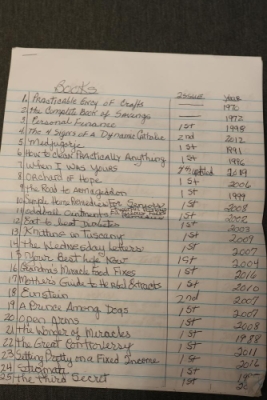 Books Issue Year
1. Practicable Ency of Crafts — 197
2 the Complete Book of Sewings — 1972
3 Personal Finance 1st 1998
4 The 4 Signs of A Dynamic Catholic 2nd 2012
5 Medjugorje 1st 1991
6 How to Clean Practically Anything 1st 1996
7 When I Was Yours 2019
8 Orchard of Hope 1st 2006
9 the Road to Armageddon 1st 1999
10 Simple Home Remedies For Seniors 1st 2008
11 1st 2002
12 Eat to beat Diabetes 1st 2003
13 Knitting in Tuscany 1st 2009
14 the Wednesday Letters 1st 2007
15 Your Best Life Now 1st 2004
16 Grandma's Miracle Food Fixes 1st 2016
17 Mothers Guide to Herbal Extracts 1st 2010
18 Einstein 2nd 2007
19 A Prince Among Dogs 1st 2007
20 Open Arms 1st 2008
21 the Wonder of Miracles 1st 1988
22 the Great Controversy 1st 2011
23 Sitting Pretty on a Fixed Income 1st 2016
24 1st
25 the Third Secret 1st